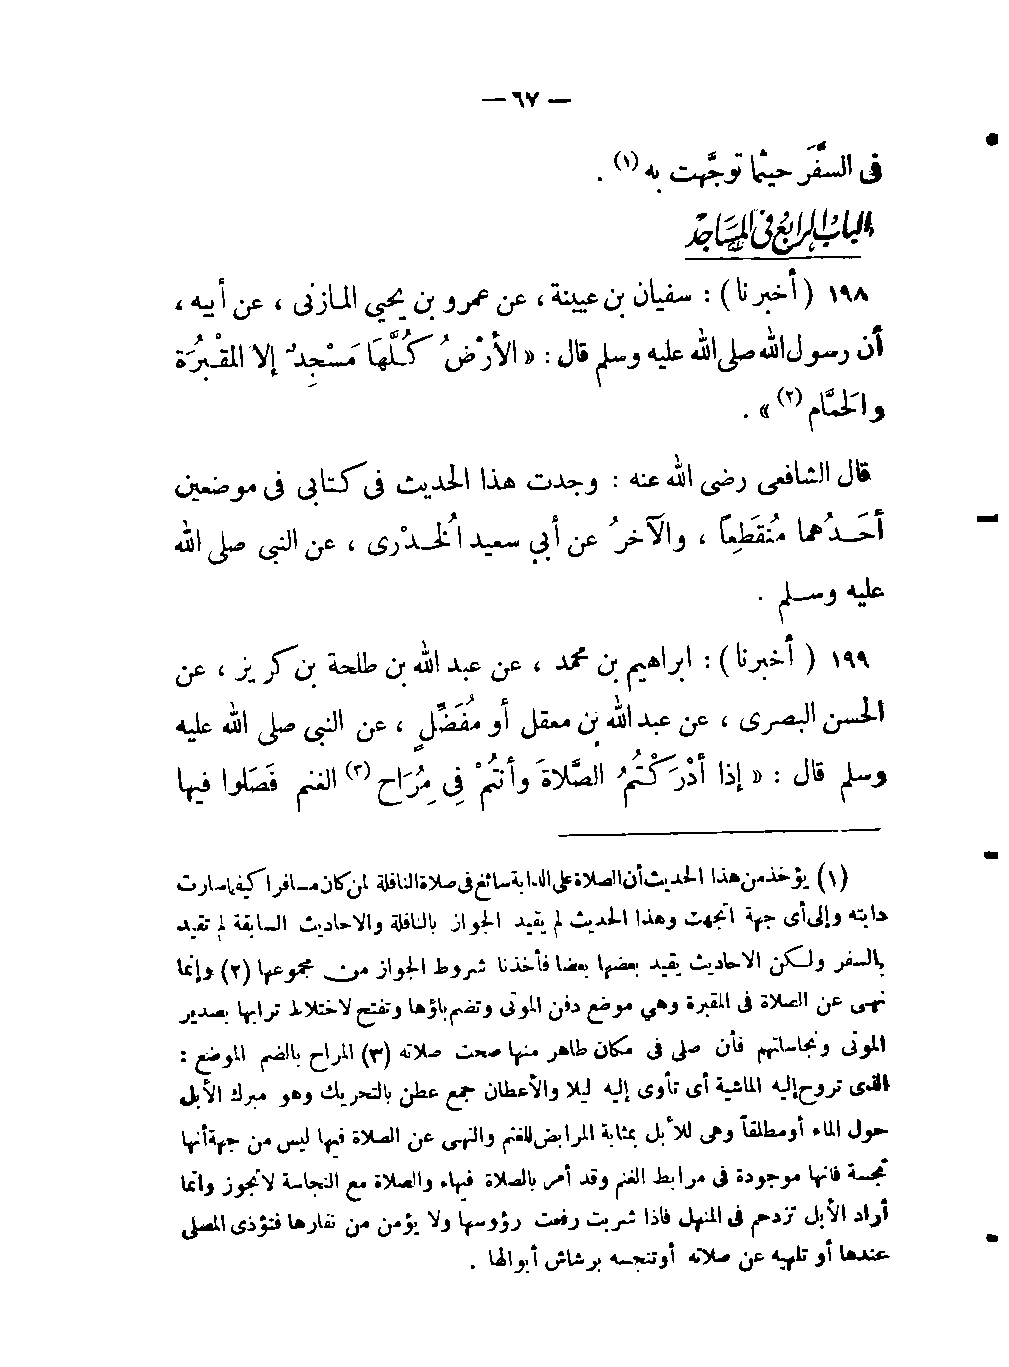 — ٦٧ —
فى السَّفَرِ حيثما توجَّهت به (١) .
الباب الرابع فى المساجد
١٩٨ ( أخبرنا ) : سفيان بن عيينة ، عن عمرو بن يحيي المازنى ، عن أبيه ،
أن رسول الله صلى الله عليه وسلم قال : « الأرْضُ كُلَّهَا مَسْجِدٌ إلا المقْبُرَة
والحَمَّام (٢) » .
قال الشافعى رضى الله عنه : وجدت هذا الحديث فى كتابى فى موضعين
أحَدُهما مُنقَطِعاً ، والآخرُ عن أبي سعيد الُخدْرى ، عن النبى صلى الله
عليه وسلم .
١٩٩ ( أخبرنا ) : ابراهيم بن محمد ، عن عبد الله بن طلحة بن كريز ، عن
الحسن البصرى ، عن عبد الله بن معقل أو مُفَضِّلٍ ، عن النبى صلى الله عليه
وسلم قال : « إذا أدْرَكْتُمُ الصَّلاةَ وأنتُمْ فِى مِرُاح (٣) الغنم فَصَلوا فيها
(١) يؤخذ من هذا الحديث أن الصلاة على الدابة سائغ فى صلاة النافلة لمن كان مسافرا كيفما سارت
دابته وإلى أى جهة اتجهت وهذا الحديث لم يقيد الجواز بالنافلة والاحاديث السابقة لم تقيد
بالسفر ولكن الاحاديث يقيد بعضها بعضا فأخذنا شروط الجواز من مجموعها (٢) وإنما
نهى عن الصلاة فى المقبرة وهي موضع دفن الموتى وتضم باؤها وتفتح لاختلاط ترابها بصديد
الموتى ونجاساتهم فأن صلى فى مكان طاهر منها صحت صلاته (٣) المراح بالضم الموضع :
الذى تروح إليه الماشية أى تأوى إليه ليلا والأعطان جمع عطن بالتحريك وهو مبرك الأبل
حول الماء أو مطلقاً وهى للأبل بمثابة المرابض للغنم والنهى عن الصلاة فيها ليس من جهة أنها
نجسة فانها موجودة فى مرابط الغنم وقد أمر بالصلاة فيهاء والصلاة مع النجاسة لاتجوز وانما
أراد الأبل تزدحم فى المنهل فاذا شربت رفعت رؤوسها ولا يؤمن من نفارها فتؤذى المصلى
عندها أو تلهيه عن صلاته أو تنجسه برشاش أبوالها .